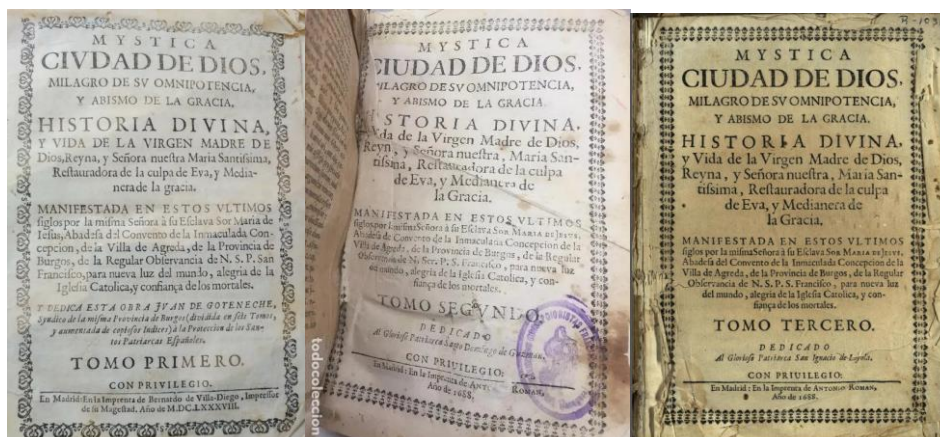 MYSTICA
CIVDAD DE DIOS,
MILAGRO DE SV OMNIPOTENCIA,
Y ABISMO DE LA GRACIA.
HISTORIA DIVINA,
Y VIDA DE LA VIRGEN MADRE DE
Dios, Reyna, y Señora nuestra Maria Santissima,
Restauradora de la culpa de Eva, y Media-
nera de la gracia.
MANIFESTADA EN ESTOS VLTIMOS
siglos por la misma Señora à su Esclava Sor Maria de
Iesus, Abadesa del Convento de la Inmaculada Con-
cepcion, de la Villa de Agreda, de la Provincia de
Burgos, de la Regular Observancia de N. S. P. San
Francisco, para nueva luz del mundo, alegria de la
Iglesia Catolica, y confiança de los mortales.
Y DEDICA ESTA OBRA JVAN DE GOYENECHE,
Syndico de la misma Provincia de Burgos (dividida en seis Tomos,
y aumentada de copiosos Indices) à la Proteccion de los San-
tos Patriarcas Españoles.
TOMO PRIMERO.
CON PRIVILEGIO.
En Madrid: En la Imprenta de Bernardo de Villa-Diego, Impressor
de su Magestad. Año de M.DC.LXXXVIII.
MYSTICA
CIUDAD DE DIOS,
MILAGRO DE SV OMNIPOTENCIA,
Y ABISMO DE LA GRACIA.
STORIA DIVINA,
Vida de la Virgen Madre de Dios,
Reyn, y Señora nuestra, Maria San-
tissima, Restauradora de la culpa
de Eva, y Medianera de
la Gracia.
MANIFESTADA EN ESTOS VLTIMOS
siglos por la misma Señora à su Esclava SOR MARIA DE JESUS,
Abadesa del Convento de la Inmaculada Concepcion de la
Villa de Agreda, de la Provincia de Burgos, de la Regular
Observancia de N. Ser. P. S. Francisco, para nueva luz
del mundo, alegria de la Iglesia Catolica, y con-
fiança de los mortales.
TOMO SEGVNDO,
DEDICADO
Al Glorioso Patriarca Santo Domingo de Guzman.
CON PRIUILEGIO:
En Madrid: En la Imprenta de ANTONIO ROMAN,
Año de 1688.
todocoleccion
R-103
MYSTICA
CIUDAD DE DIOS,
MILAGRO DE SV OMNIPOTENCIA,
Y ABISMO DE LA GRACIA.
HISTORIA DIVINA,
y Vida de la Virgen Madre de Dios,
Reyna, y Señora nuestra, Maria San-
tissima, Restauradora de la culpa
de Eva, y Medianera de
la Gracia.
MANIFESTADA EN ESTOS VLTIMOS
siglos por la misma Señora à su Esclava SOR MARIA DE JESUS,
Abadesa del Convento de la Inmaculada Concepcion de la
Villa de Agreda, de la Provincia de Burgos, de la Regular
Observancia de N. S. P. S. Francisco, para nueva luz
del mundo, alegria de la Iglesia Catolica, y con-
fiança de los mortales.
TOMO TERCERO.
DEDICADO
Al Glorioso Patriarca San Ignacio de Loyola.
CON PRIUILEGIO:
En Madrid: En la Imprenta de ANTONIO ROMAN,
Año de 1688.